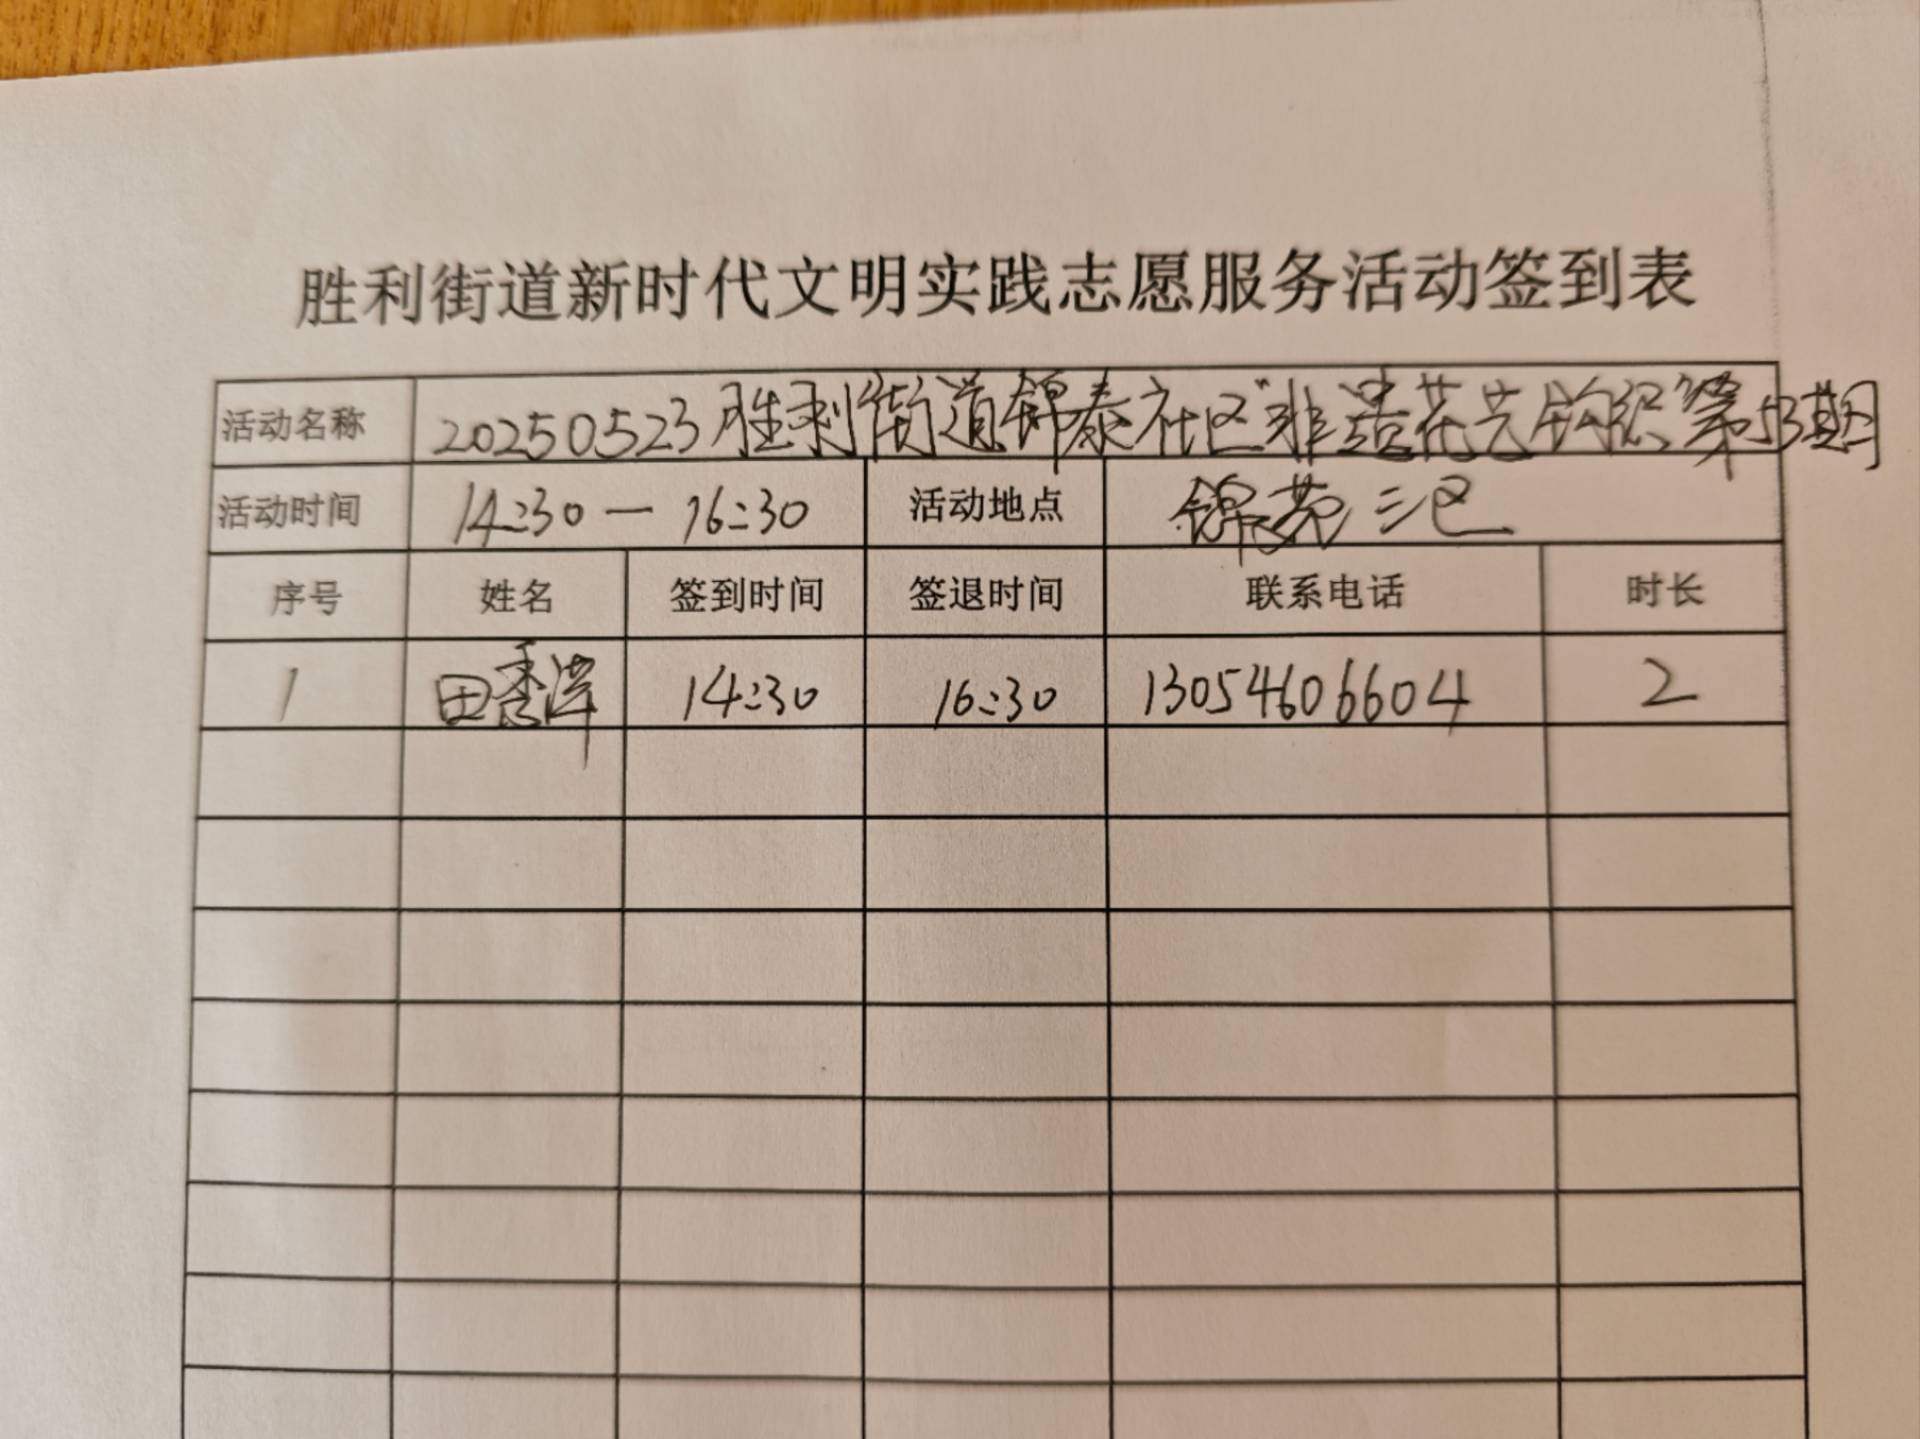 胜利街道新时代文明实践志愿服务活动签到表
活动名称 20250523胜利街道锦泰社区"非遗花艺钩织"第53期
活动时间 14:30一16:30 活动地点 锦苑三区
序号 姓名 签到时间 签退时间 联系电话 时长
1 田秀萍 14:30 16:30 13054606604 2